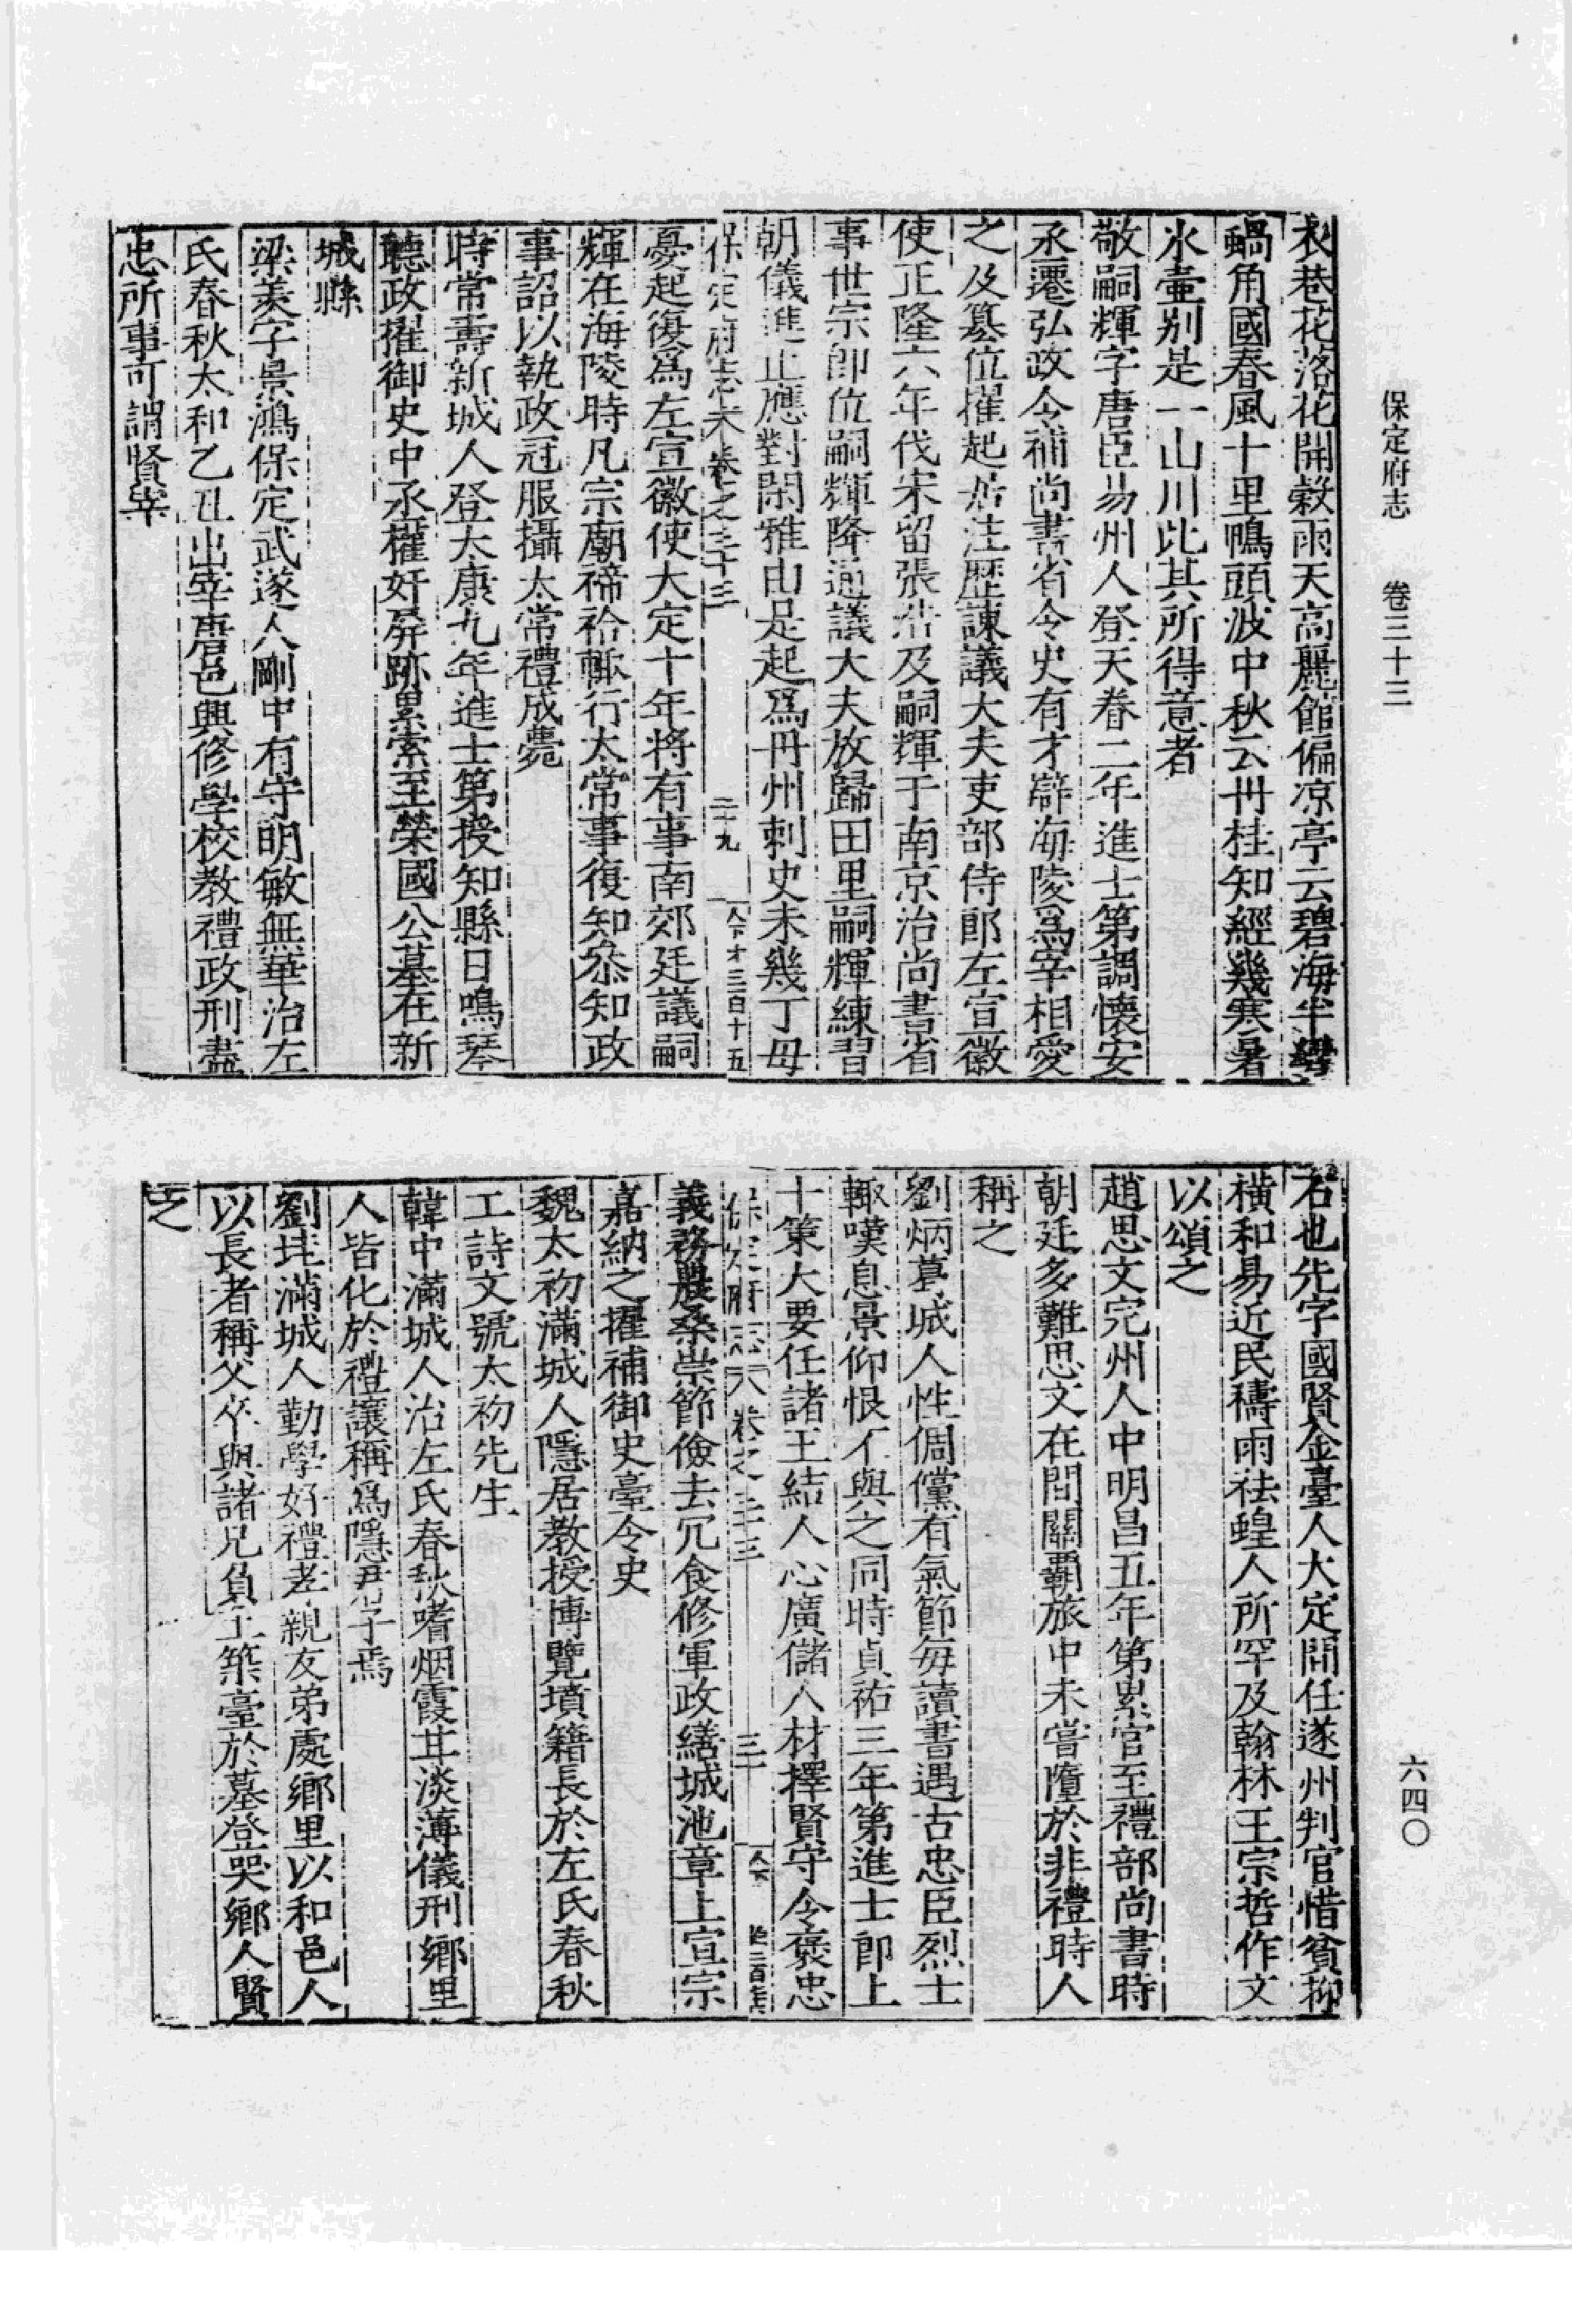 保定府志　卷三十三
衣巷花落花開穀雨天高麗館偏凉亭云碧海半
蝸角國春風十里鴨頭波中秋云丹桂知經幾寒暑
氷壷别是一山川此其所得意者
敬嗣輝字唐臣易州人登天眷二年進士第調懷安
丞遷弘政令補尚書省令史有才辟海陵爲宰相愛
之及簒位擢起居注歴諫議大夫吏部侍郎左宣徽
使正隆六年伐宋留張浩及嗣輝于南京治尚書省
事世宗卽位嗣輝降通議大夫放歸田里嗣輝練習
朝儀進止應對閑雅由是起爲丹州刺史未幾丁母
保定府志 卷之三十三 二十九 人下才三百十五
憂起復爲左宣徽使大定十年將有事南郊廷議嗣
輝在海陵時凡宗廟禘祫輙行太常事復知叅知政
事詔以執政冠服攝太常禮成薨
時常壽新城人登大康九年進士第授知縣日鳴琴
聽政擢御史中丞權奸屏跡累索至榮國公墓在新
城縣
梁羨字景鴻保定武遂人剛中有守明敏無華治左
氏春秋太和乙丑出宰唐邑興修學校教禮政刑盡
忠所事可謂賢宰
六四〇
石也先字國賢金臺人大定間任遂州判官惜貧抑
橫和易近民禱雨祛蝗人所罕及翰林王宗哲作文
以頌之
趙思文完州人中明昌五年第累官至禮部尚書時
朝廷多難思文在間關覊旅中未嘗隳於非禮時人
稱之
劉炳葛城人性倜儻有氣節每讀書遇古忠臣烈士
輙嘆息景仰恨不與之同時貞祐三年第進士卽上
十策大要任諸王結人心廣儲人材擇賢守令褒忠
保定府志 卷之三十三 三十
義務農桑崇節儉去冗食修軍政繕城池章上宣宗
嘉納之擢補御史臺令史
魏太初滿城人隱居教授博覽墳籍長於左氏春秋
工詩文號太初先生
韓中滿城人治左氏春秋嗜烟霞甘淡薄儀刑鄉里
人皆化於禮讓稱爲隱君子焉
劉㘰滿城人勤學好禮孝親友弟處鄉里以和邑人
以長者稱父卒與諸兄負土築臺於墓登哭鄉人賢
之